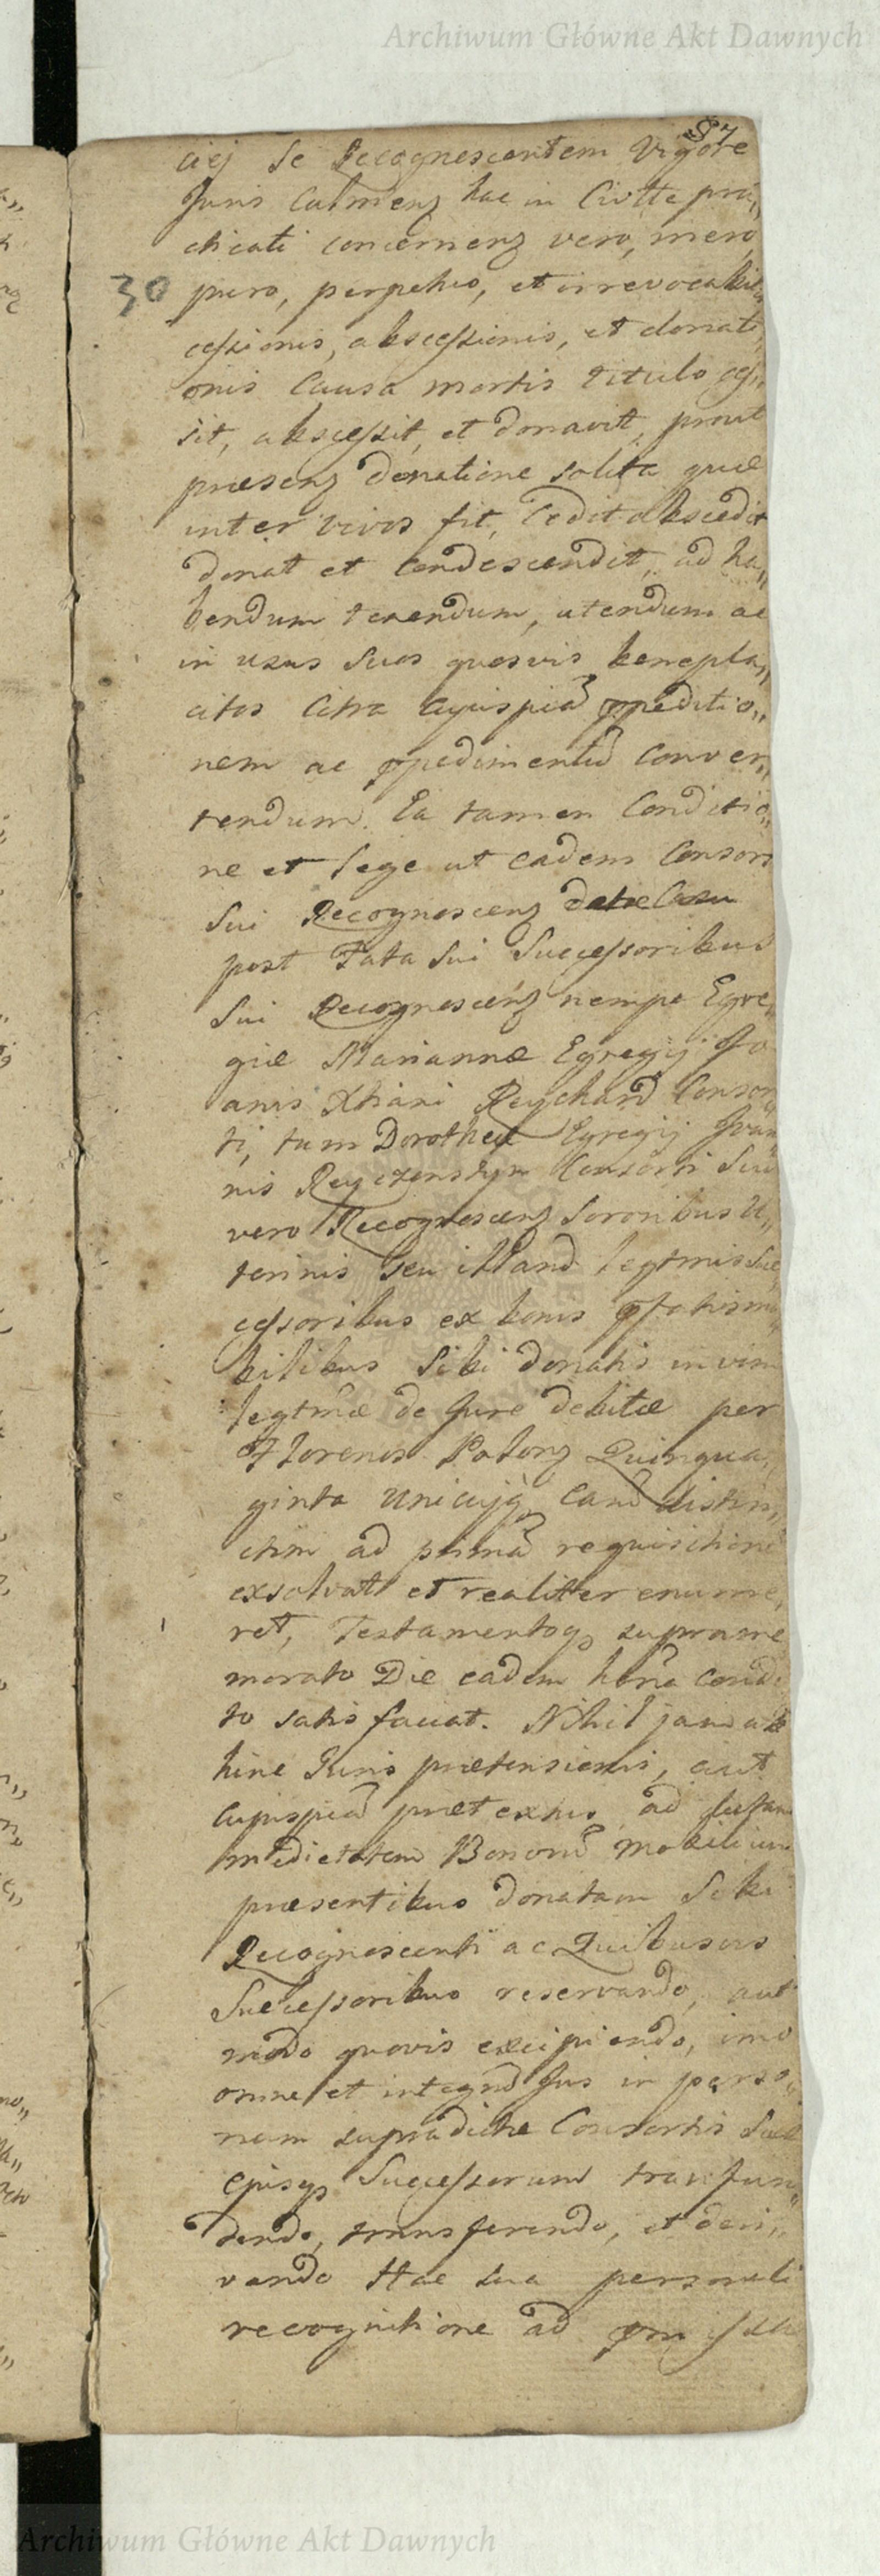 Archiwum Główne Akt Dawnych
87
ciej Se Recognescentem Vigore
Juris Culmens hac in Civtte præ„
dicati concernens vero, mero
30
puro, perpetuo, et irrevocabili
cessionis, abscessionis, et donati„
onis Causa mortis titulo ces„
sit, abscessit, et donavit, prout
præsens donatione solita quæ
inter vivos fit, Cedit abscedit
donat et condescendit, ad ha„
bendum tenendum, utendum ac
in usus suos quosvis benepla„
citos Citra cujuspiã impeditio„
nem ac impedimentũ Conver„
tendum. Ea tamen Conditio„
ne et lege ut eadem Consors
Sui Recognoscens
post Fata Sui Successoribus
Sui Recognoscens nempe Egre„
giæ Mariannæ Egregij Jo
anis Xtiani Reychard Consor
ti, tum Dorotheæ Egregij Joan
nis Consorti Sui
vero Recognoscens Sororibus U„
terinis seu illarũ legtmis Suc
cessoribus ex bonis pfatis mo
bilibus Sibi donatis in vim
legtmæ de Jure debitæ per
Florenos Polons Quinqua„
ginta Unicuiq earũ distin„
ctim ad primã requisitione
exsolvat et realitter enume„
ret, Testamentoq supra me
morato Die eadem hora Condi
to satis faciat. Nihil jam ab
hinc Juris prætensionis, aut
cujuspiã prætextus, ad
medietatem Bonorũ Mobilium
præsentibus donatam Sibi
Recognoscenti ac Quibusvis
Successoribus reservando, aut
modo quovis excipiendo, imo
omne et integrũ Jus in perso„
nam supradictæ Consortis Suæ
ejusq Successorum transfun„
dendo, transferendo, et deri„
vando Hac sua personali
recognitione ad
Archiwum Główne Akt Dawnych